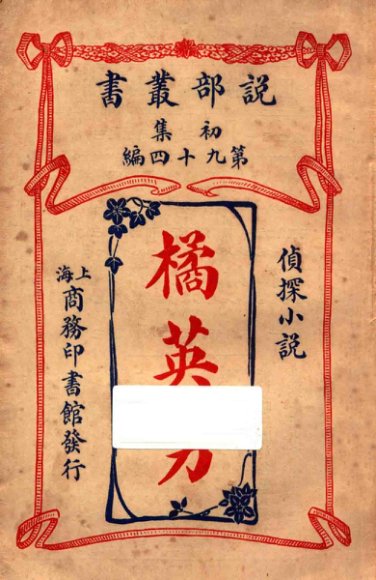 説部叢書
初集
第九十四編
偵探小説
橘英
上海
商務印書館發行